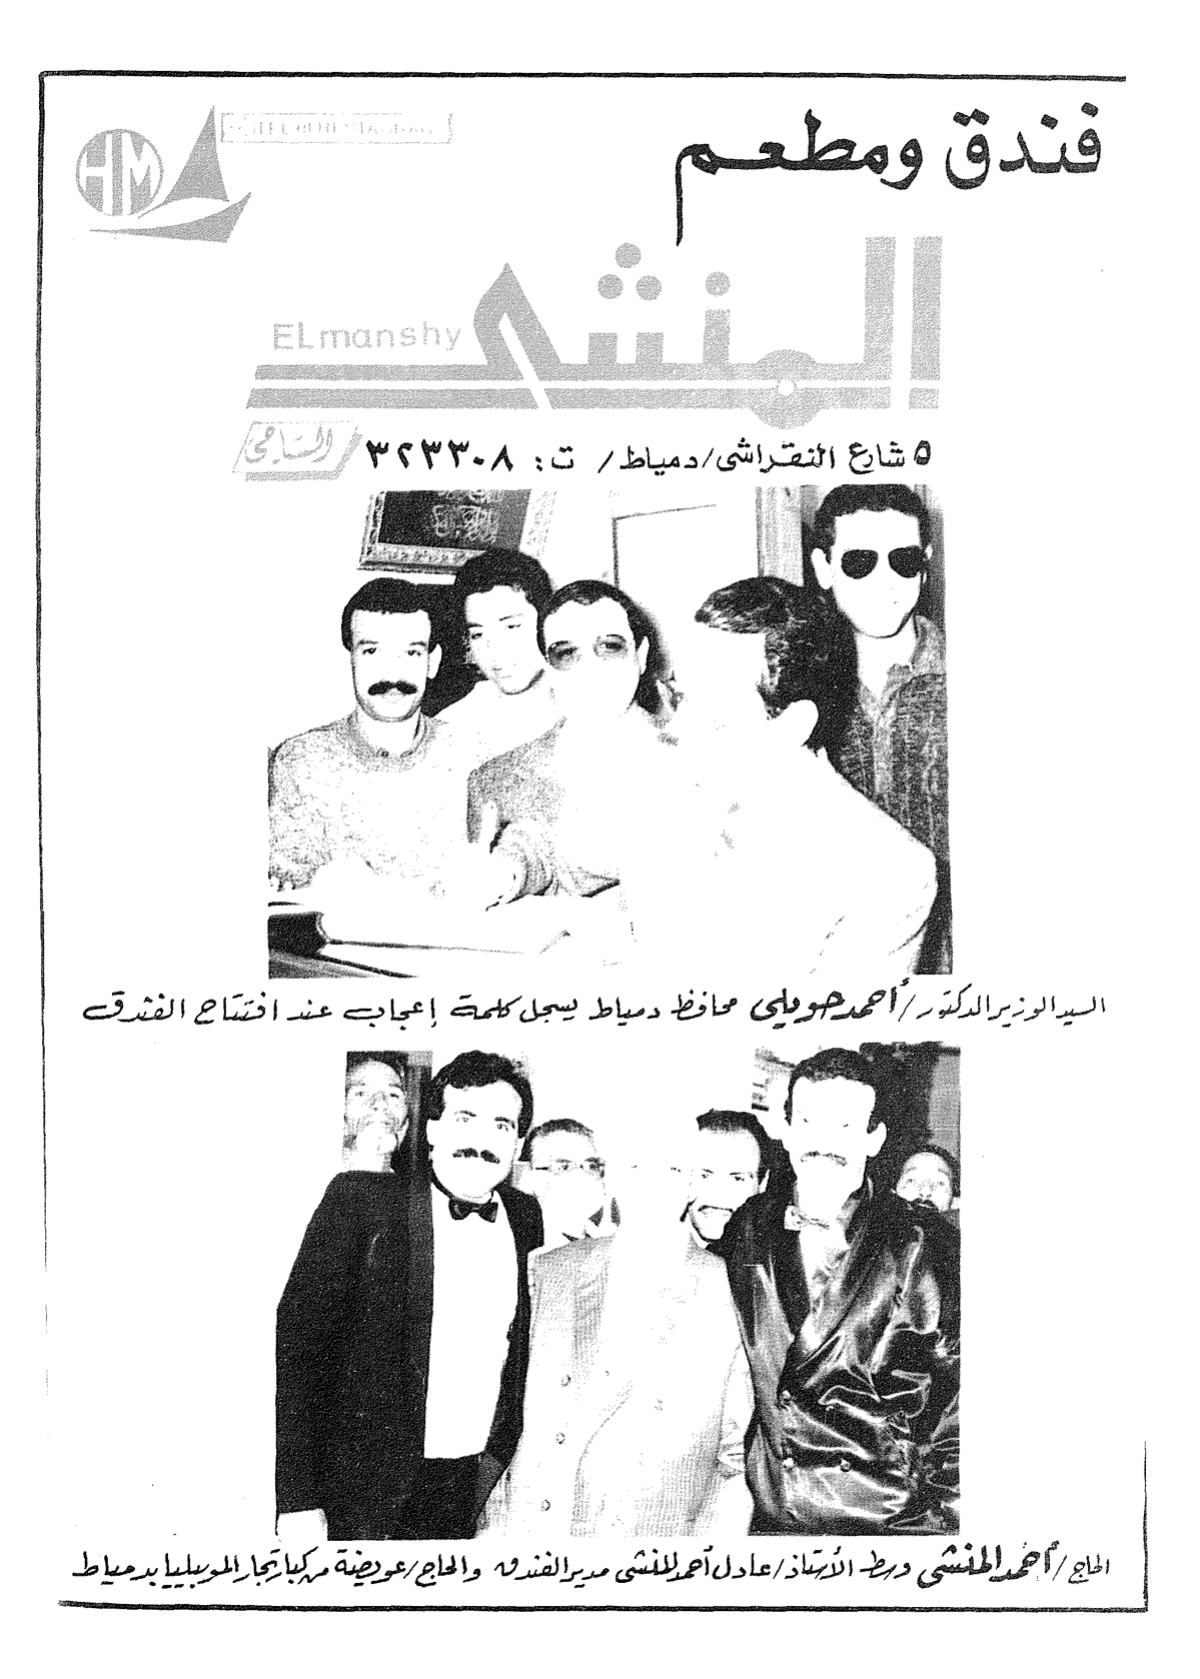 فندق ومطعم
HM
المنشى
ELmanshy
السياحى
٥ شارع النقراشى/دمياط/ ت: ٣٢٣٣٠٨
السيد الوزير الدكتور/أحمد جويلي محافظ دمياط يسجل كلمة إعجاب عند افتتاح الفندق
الحاج/أحمد المنشى وسط الأستاذ/عادل أحمد المنشى مدير الفندق والحاج/عويضة من كبار تجار الموبيليا بدمياط